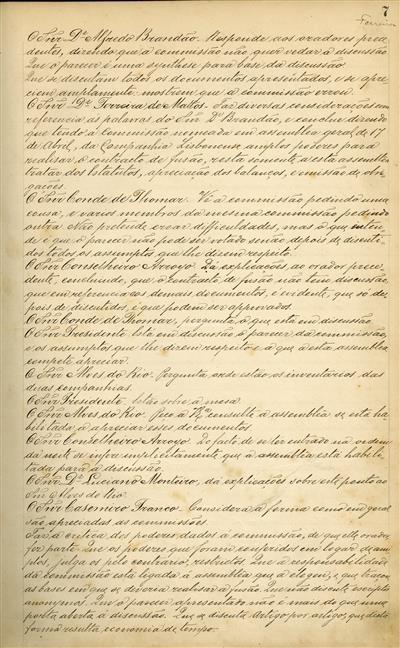 7
Ferreira
O Snr. Dr. Macedo Brandão. Responde aos oradores prece-
dentes, dizendo que a commissão não quer vedar a discussão
Que o parecer é uma synthese para base da discussão
Que se discutam todos os documentos apresentados, e se apre-
ciem amplamente, mostrem que a commissão errou.
O Snr. Dr. Ferreira de Mattos. Faz diversas considerações com
referencia as palavras do Snr. Dr. Brandão, e conclue dizendo
que tendo a Commissão nomeada em assemblea geral de 17
de Abril, da Companhia Lisbonense amplos poderes para
realisar o contracto de fusão, resta sómente a esta assemblea
tratar dos Estatutos, apreciação dos balanços, emissão de obri-
gações.
O Snr. Conde de Thomar. Vê a commissão pedindo uma
cousa, e varios membros da mesma commissão pedindo
outra. Não pretende crear difficuldades, mas o que enten-
de é que o parecer não póde ser votado senão depois de discuti-
dos todos os assumptos que lhe dizem respeito.
O Snr. Conselheiro Arroyo. Dá explicações ao orador prece-
dente, concluindo, que o Contracto de fusão não tem discussão,
que em referencia aos demais documentos, é evidente, que só de-
pois de discutidos, é que podem ser approvados.
O Snr. Conde de Thomar, pergunta o que está em discussão
O Snr. Presidente. Está em discussão o parecer da commissão,
e os assumptos que lhe dizem respeito e a que a esta assemblea
compete apreciar.
O Snr. Alves do Rio. Pergunta onde estão os inventarios das
duas companhias.
O Snr. Presidente. Estão sobre a mesa.
O Snr. Alves do Rio. Pede a V. Exa. consulte a assemblea se está ha-
bilitada a apreciar esses documentos
O Snr. Conselheiro Arroyo. Do facto de se ter entrado na ordem
da noite se infere implicitamente, que a assemblea está habili-
tada para a discussão.
O Snr. Dr. Luciano Monteiro, dá explicações sobre este ponto ao
Snr. Alves do Rio
O Snr. Casemiro Franco. Considera a forma como em geral
são apreciadas as commissões
Faz a critica dos poderes dados á commissão, de que elle orador
fez parte. Que os poderes que foram conferidos em logar de am-
plos, julga os pelo contrario, restrictos. Que a responsabilidade
da commissão está ligada á assemblea que a elegeu, e que traçou
as bases em que se deveria realisar a fusão. Que não discute escriptos
anonymos. Que o parecer apresentado não é mais do que uma
porta aberta á discussão. Que se discuta artigo por artigo, que desta
forma resulta economia de tempo.